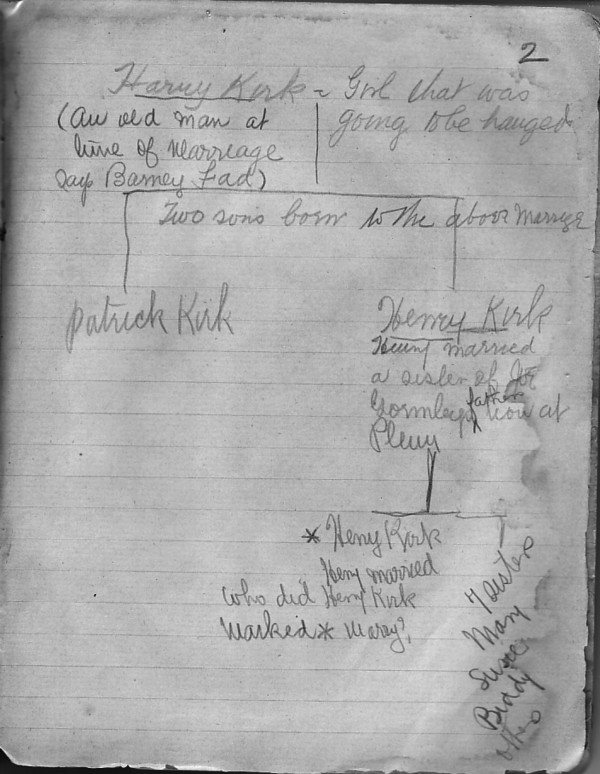 2
Harry Kirk = Girl that was
going to be hanged
(An old man at
time of Marreage
say Barney Fad)
Two sons born to the above Marrage
Patrick Kirk
Henry Kirk
Henry married
a sister of Joe
Gormleys father now at
Plenn
* Heny Kirk
Heny married
Who did Heny Kirk
Marked * Maray?
7 Sisters
Mary
Susie
Biddy
others